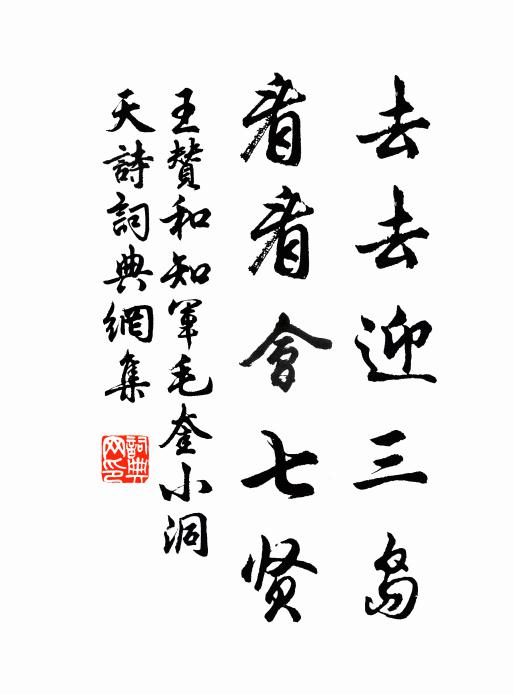 去去迎三岛
看看會七贤
王贊和知軍毛奎小洞
天詩詞典網集
詞典网印